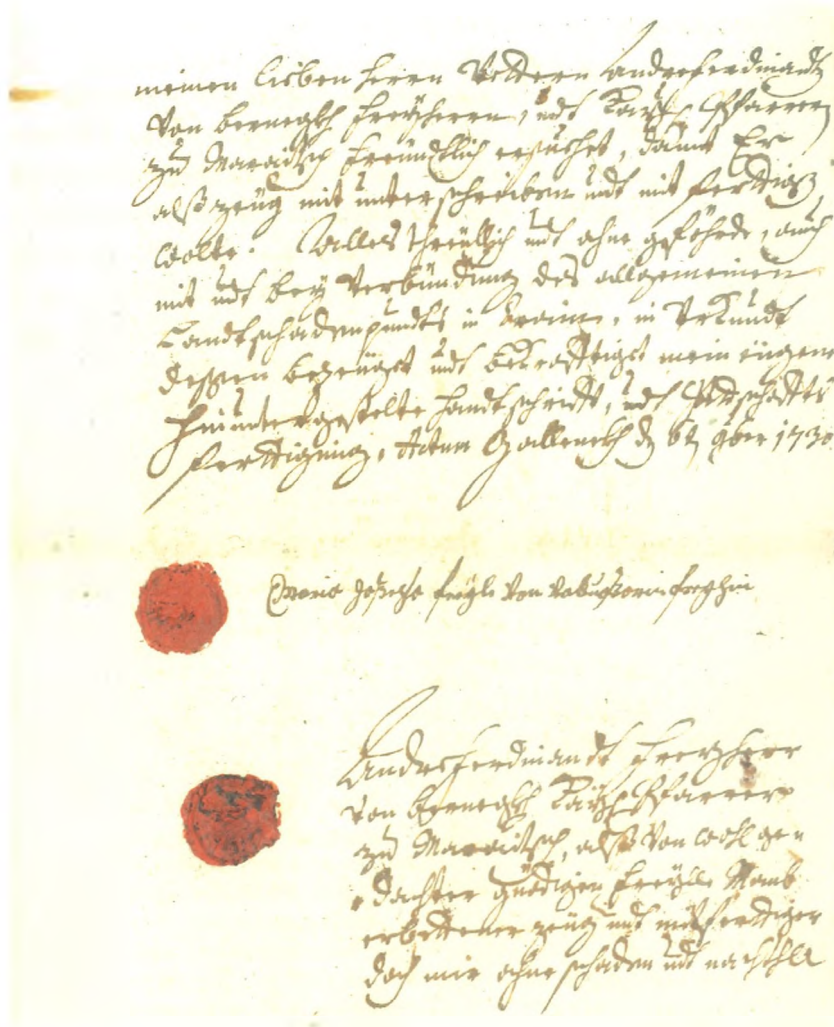 meinen lieben herrn Vettern Andre ferdinandt
Von bernegkh freyherrn, undt Kays: Pfarrern
zu Moraitsch freündtlich ersuchet, damit Er
alß zeüg mit unterschreiben undt mit fertigen
wolte. Alles threülich undt ohne geföhrde, auch
mit undt bey Verbündung des allgemeinen
Landtschadenpundts in Crain, in Urkundt
dessen bezeüget undt bekrafftiget mein eügene
hierunter gestelte handtschrifft, undt Pettschaffts
fertigung. Actum Gallenekh d 6t 9ber 1730
Maria Josepha freyle Von freyhin
Andre ferdinandt freyherr
von bernegkh Kays: Pfarrer
zu Moraitsch, alß Von wohl gen
dachter gnedigen freyle Maub
erbettener zeüg undt mitfertiger
doch mir ohne schaden undt nachthll